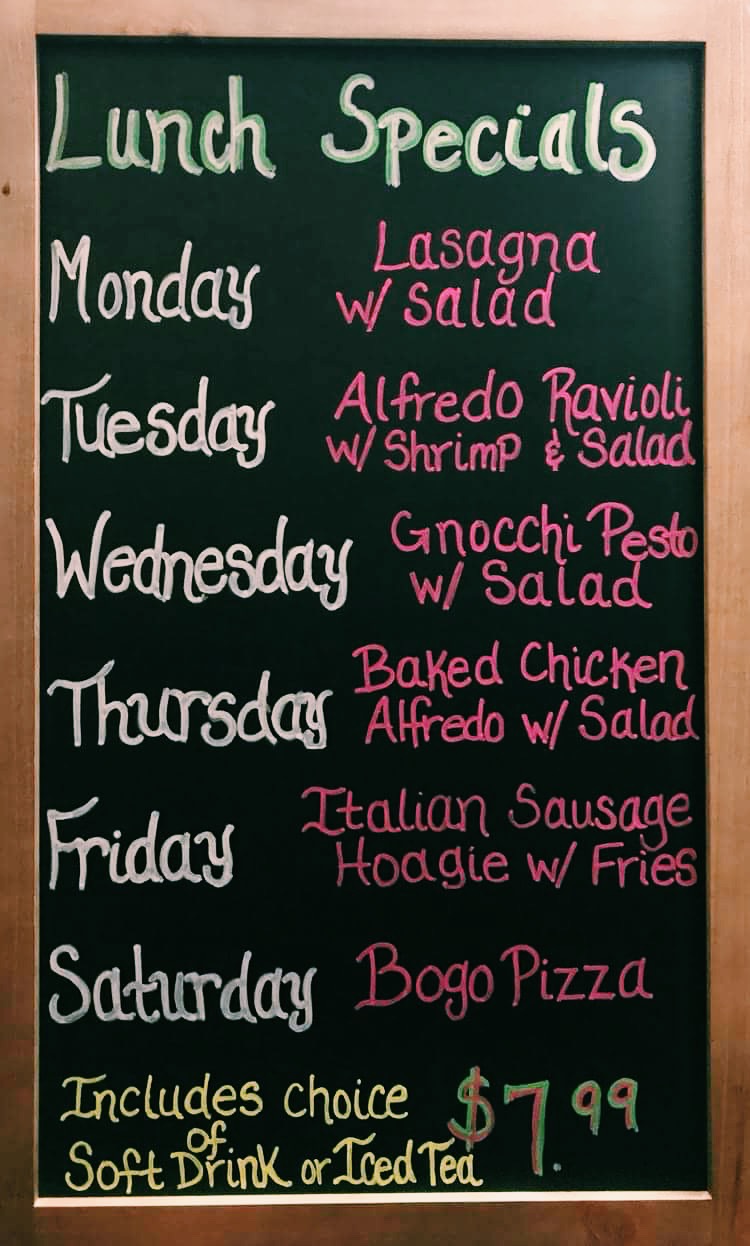 Lunch Specials
Monday Lasagna
w/ Salad
Tuesday Alfredo Ravioli
w/ Shrimp & Salad
Wednesday Gnocchi Pesto
w/ Salad
Thursday Baked Chicken
Alfredo w/ Salad
Friday Italian Sausage
Hoagie w/ Fries
Saturday Bogo Pizza
Includes choice $7.99
of
Soft Drink or Iced Tea